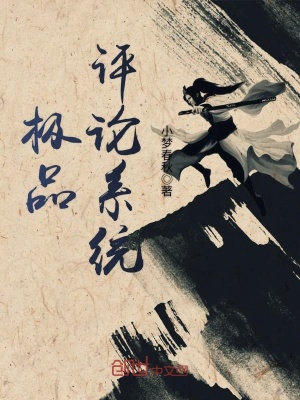 极品
评论系统
小梦春秋◎著
创世中文网